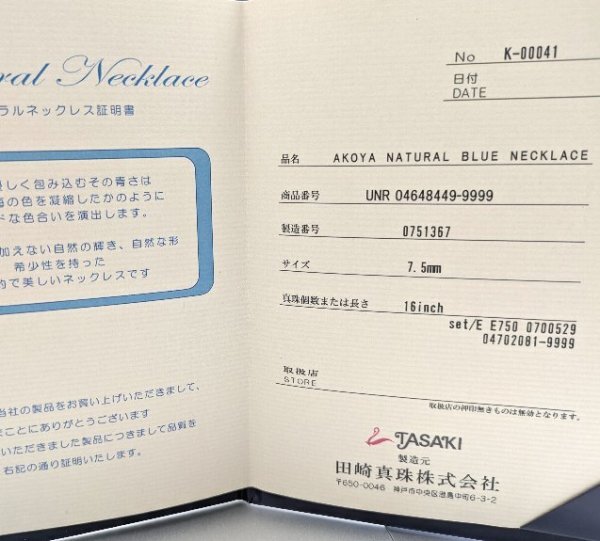 ral Necklace
ラルネックレス証明書
しく包み込むその青さは
の色を凝縮したかのように
ドな色合いを演出します。
加えない自然の輝き、自然な形
希少性を持った
的で美しいネックレスです
当社の製品をお買い上げいただきまして、
ことにありがとうございます
いただきました製品につきまして品質を
右記の通り証明いたします。
No K-00041
日付
DATE
品名 AKOYA NATURAL BLUE NECKLACE
商品番号 UNR 04648449-9999
製造番号 0751367
サイズ 7.5mm
真珠個数または長さ 16inch
set/E E750 0700529
04702081-9999
取扱店
STORE
取扱店の押印無きものは無効となります。
TASAKI
製造元
田崎真珠株式会社
〒650-0046 神戸市中央区港島中町6-3-2